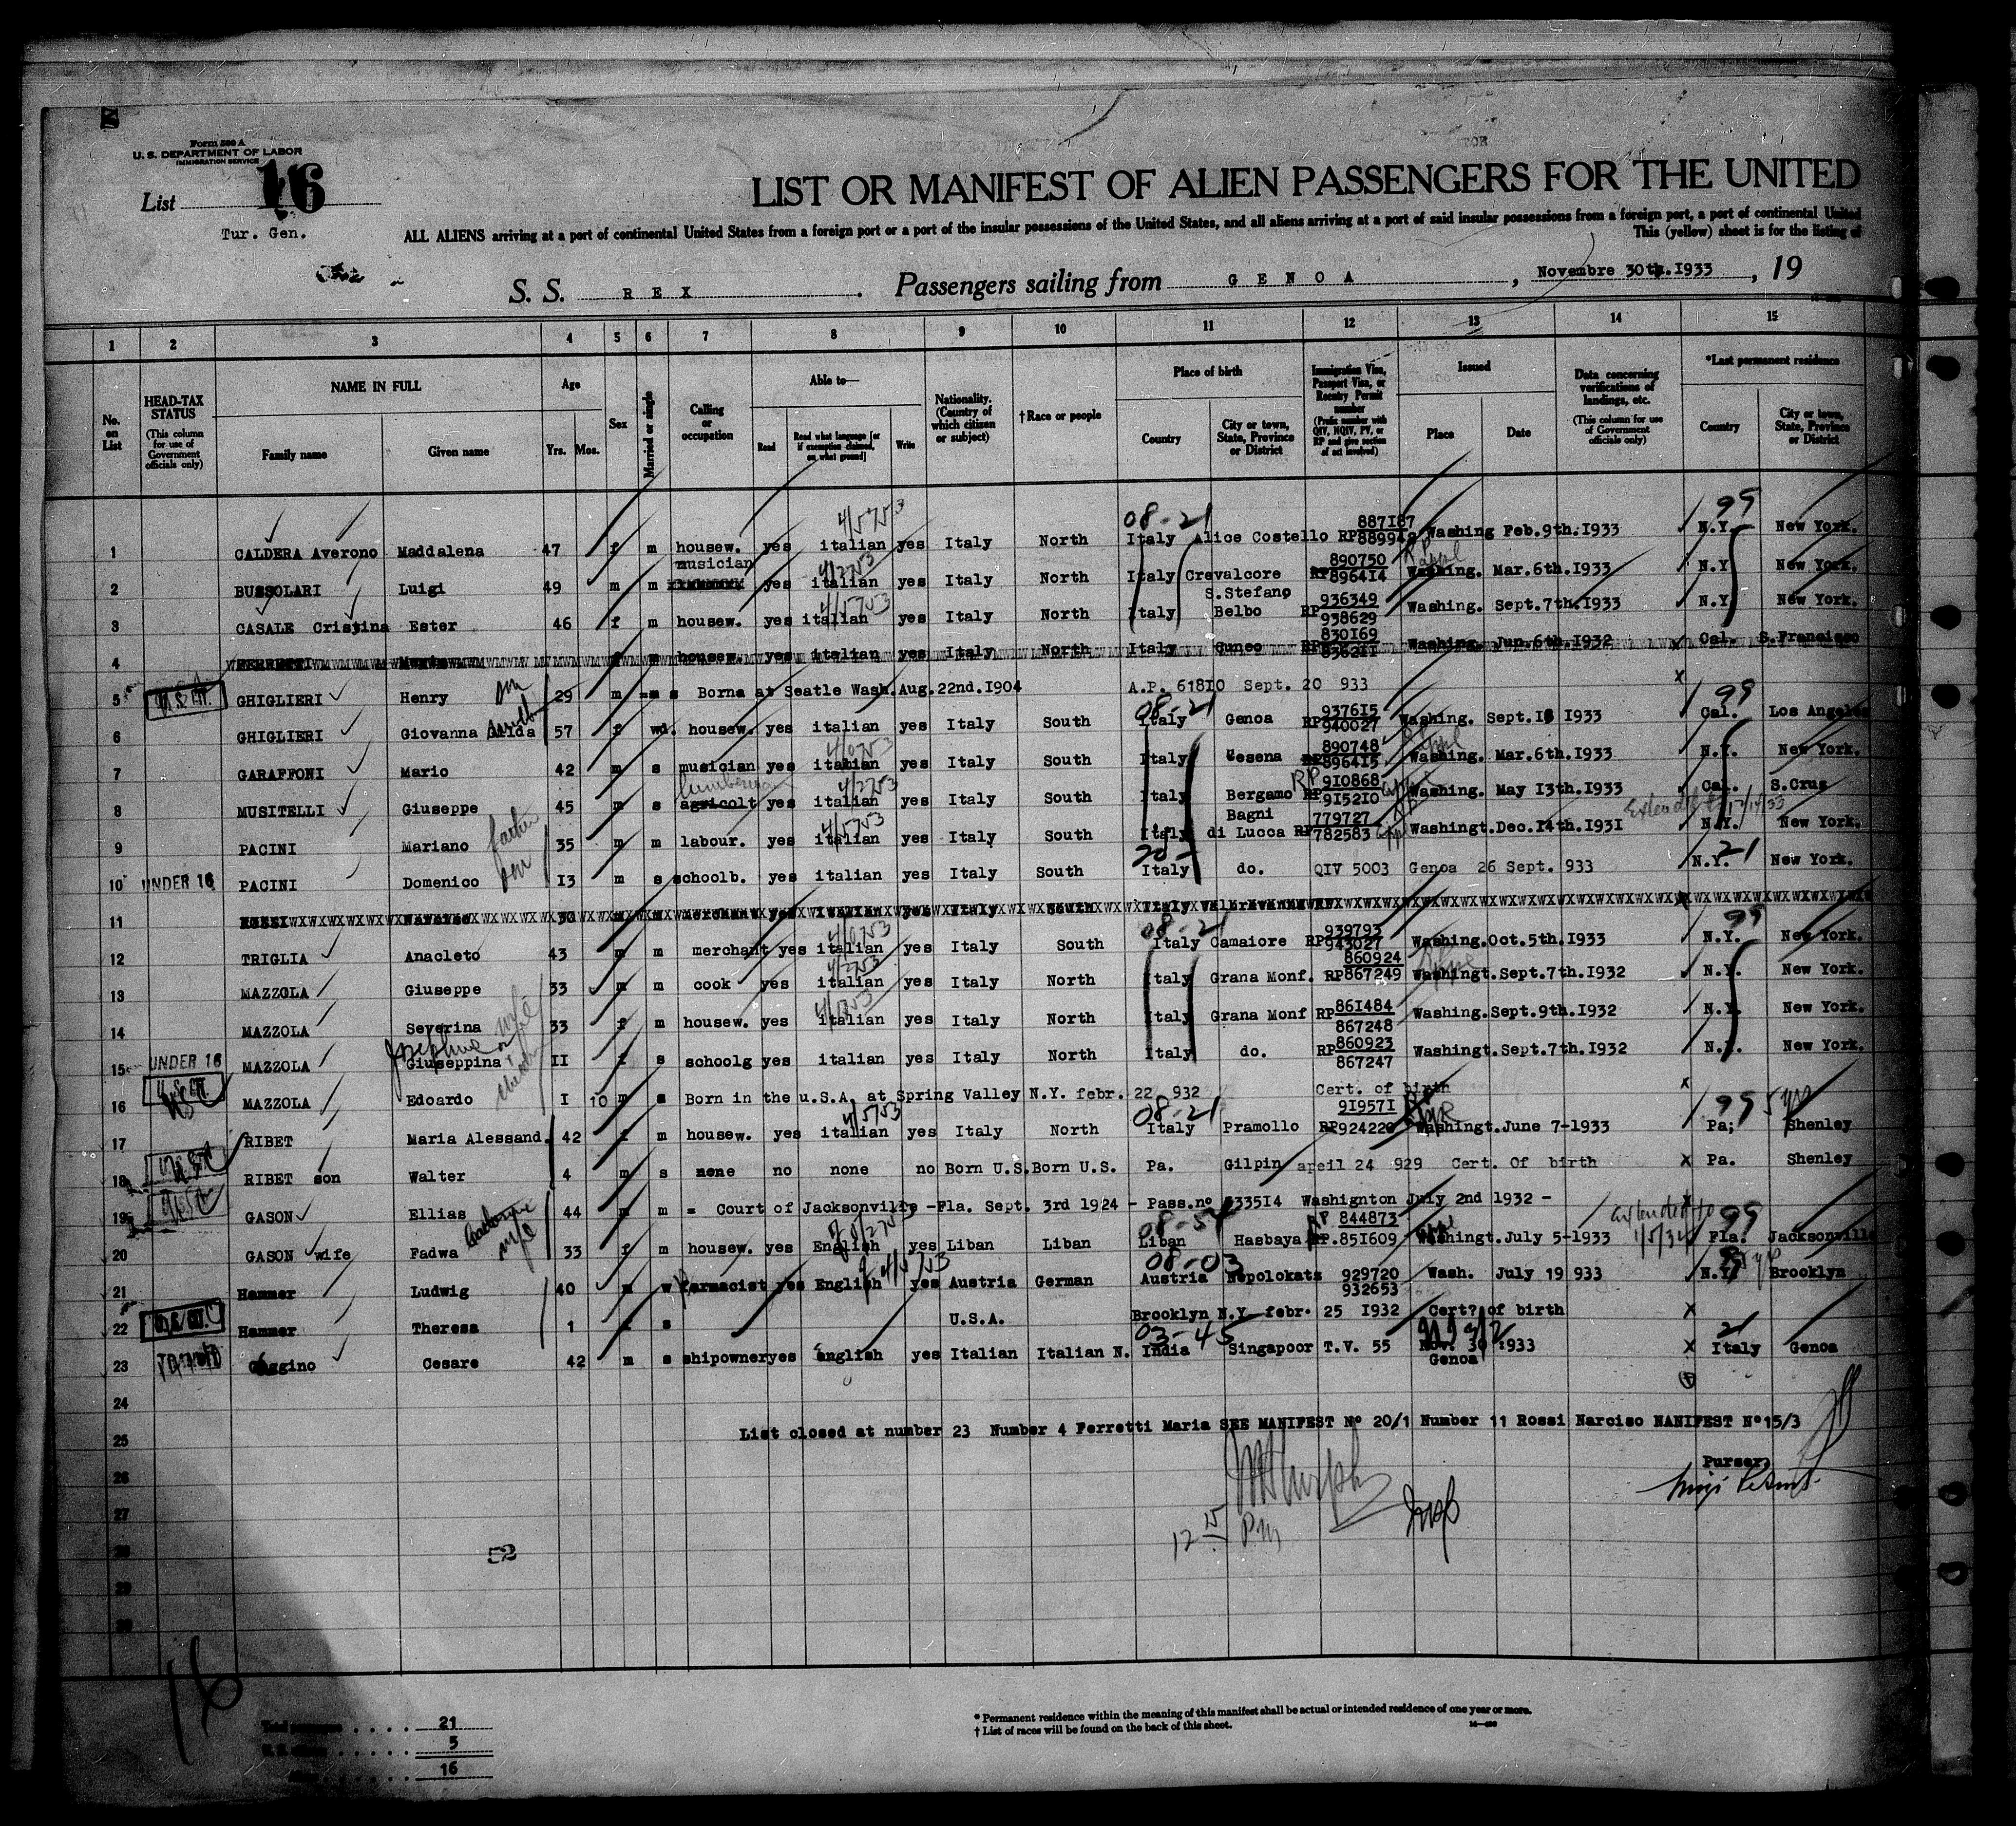 Form 500 A
U. S. DEPARTMENT OF LABOR
IMMIGRATION SERVICE
List 16
Tur. Gen.
LIST OR MANIFEST OF ALIEN PASSENGERS FOR THE UNITED
ALL ALIENS arriving at a port of continental United States from a foreign port or a port of the insular possessions of the United States, and all aliens arriving at a port of said insular possessions from a foreign port, a port of continental United
This (yellow) sheet is for the listing of
S. S. REX. Passengers sailing from GENOA, Novembre 30th.I933, 19
1 2 3 4 5 6 7 8 9 10 11 12 13 14 15
No. on List
HEAD-TAX STATUS (This column for use of Government officials only)
NAME IN FULL
Family name Given name
Age
Yrs. Mos.
Sex
Married or single
Calling or occupation
Able to—
Read Read what language [or if exemption claimed, on what ground] Write
Nationality. (Country of which citizen or subject)
†Race or people
Place of birth
Country City or town, State, Province or District
Immigration Visa, Passport Visa, or Reentry Permit number (Prefix number with QIV, NQIV, PV, or RP and give section of act involved)
Issued
Place Date
Data concerning verifications of landings, etc. (This column for use of Government officials only)
*Last permanent residence
Country City or town, State, Province or District
4/5753 08-21 887I87 99
1 CALDERA Averono Maddalena 47 f m housew. yes italian yes Italy North Italy Alice Costello RP Washing Feb.9th.I933 N.Y. New York.
musician 4/2753 890750
2 BUSSOLARI Luigi 49 m m yes italian yes Italy North Italy Crevalcore RP8964I4 Washing. Mar.6th.I933 N.Y New York.
4/5753 S.Stefano 936349
3 CASALE Cristina Ester 46 f m housew. yes italian yes Italy North Italy Belbo RP938629 Washing. Sept.7th.I933 N.Y New York.
830I69
4 FERRETTI Maria f m housew. yes italian yes Italy North Italy Cuneo Washing. Jun.6th.I932 x Cal. S.Francisco
5 GHIGLIERI Henry 29 m s Borna at Seatle Wash.Aug.22nd.I904 A.P. 618I0 Sept. 20 933 x
08-21 9376I5 99
6 GHIGLIERI Giovanna 57 f wd. housew. yes italian yes Italy South Italy Genoa RP940027 Washing. Sept. I933 Cal. Los Angeles
890748
7 GARAFFONI Mario 42 m s musician yes italian yes Italy South Italy Cesena RP8964I5 Washing. Mar.6th.I933 N.Y. New York.
4/2753 RP 9I0868
8 MUSITELLI Giuseppe 45 m s agricolt yes italian yes Italy South Italy Bergamo RP9I52I0 Washing. May I3th.I933 Cal. S.Crus
father 4/5753 Bagni 779727 Extended to 12/14/33
9 PACINI Mariano 35 m m labour. yes italian yes Italy South Italy di Lucca RP782583 Washingt.Dec.I4th.I93I N.Y. New York.
son 20- 21
10 UNDER 16 PACINI Domenico I3 m s schoolb. yes italian yes Italy South Italy do. QIV 5003 Genoa 26 Sept. 933 N.Y. New York.
11 ROSSI Narciso merchant yes italian yes Italy South Italy
08-21 939793 99
12 TRIGLIA Anacleto 43 m m merchant yes italian yes Italy South Italy Camaiore RP943027 Washing.Oct.5th.I933 N.Y. New York.
4/2753 860924
13 MAZZOLA Giuseppe 33 m m cook yes italian yes Italy North Italy Grana Monf. RP867249 Washingt.Sept.7th.I932 N.Y. New York.
wife 86I484
14 MAZZOLA Severina 33 f m housew. yes italian yes Italy North Italy Grana Monf RP 867248 Washing.Sept.9th.I932 N.Y. New York.
Josephine 860923
15 UNDER 16 MAZZOLA Giuseppina II f s schoolg yes italian yes Italy North Italy do. RP 867247 Washingt.Sept.7th.I932 N.Y. New York.
16 MAZZOLA Edoardo I 10 m s Born in the u.S.A. at Spring Valley N.Y. febr. 22 932 Cert. of birth x
4/5753 08-21 9I957I 99
17 RIBET Maria Alessand. 42 f m housew. yes italian yes Italy North Italy Pramollo RP Washingt.June 7-I933 Pa; Shenley
18 RIBET son Walter 4 m s none no none no Born U.S.Born U.S. Pa. Gilpin april 24 929 Cert. Of birth x Pa. Shenley
19 GASON Ellias 44 m m = Court of Jacksonville -Fla. Sept. 3rd I924 - Pass.no 335I4 Washignton July 2nd I932 -
wife 08-54 RP 844873 extended to 1/5/34 99
20 GASON wife Fadwa 33 f m housew. yes English yes Liban Liban Liban Hasbaya RP.85I609 Washingt.July 5-I933 Fla. Jacksonville
08-03
21 Hammer Ludwig 40 m w farmacist yes English yes Austria German Austria Nepolokatz 929720 932653 Wash. July I9 933 N.Y Brooklyn
22 Hammer Theresa 1 f s U.S.A. Brooklyn N.Y febr. 25 I932 Cert? of birth x
03-45 21
23 Gaggino Cesare 42 m s shipowner yes english yes Italian Italian N. India Singapoor T.V. 55 Nov. 30 I933 Genoa x Italy Genoa
24
25 List closed at number 23 Number 4 Ferretti Maria SEE MANIFEST No 20/1 Number 11 Rossi Narciso NANIFEST No15/3
26 Purser,
27
28
29
30
12 15 P.M
52
16
Total passengers 21
U. S. citizens 5
Aliens 16
* Permanent residence within the meaning of this manifest shall be actual or intended residence of one year or more.
† List of races will be found on the back of this sheet.